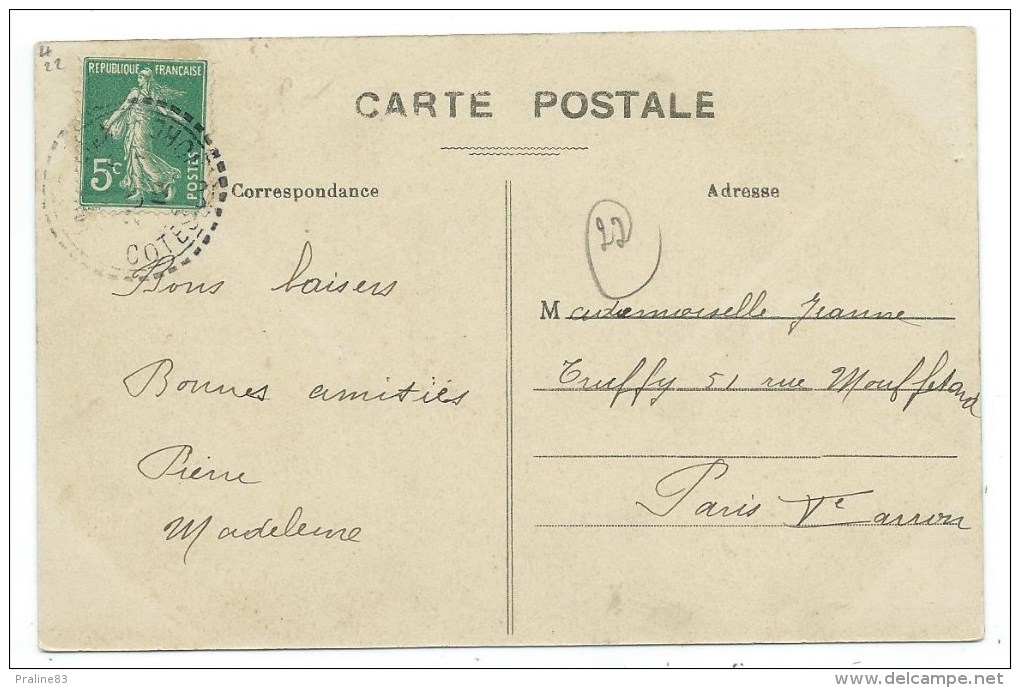 22
RÉPUBLIQUE FRANÇAISE
5c
POSTES
COTES
CARTE POSTALE
Correspondance
Adresse
22
Bons baisers
Bonnes amitiés
Pierre
Madeleine
Mademoiselle Jeanne
Truffy 51 rue Mouffetard
Paris Ve arron
Praline83
delcampe.net